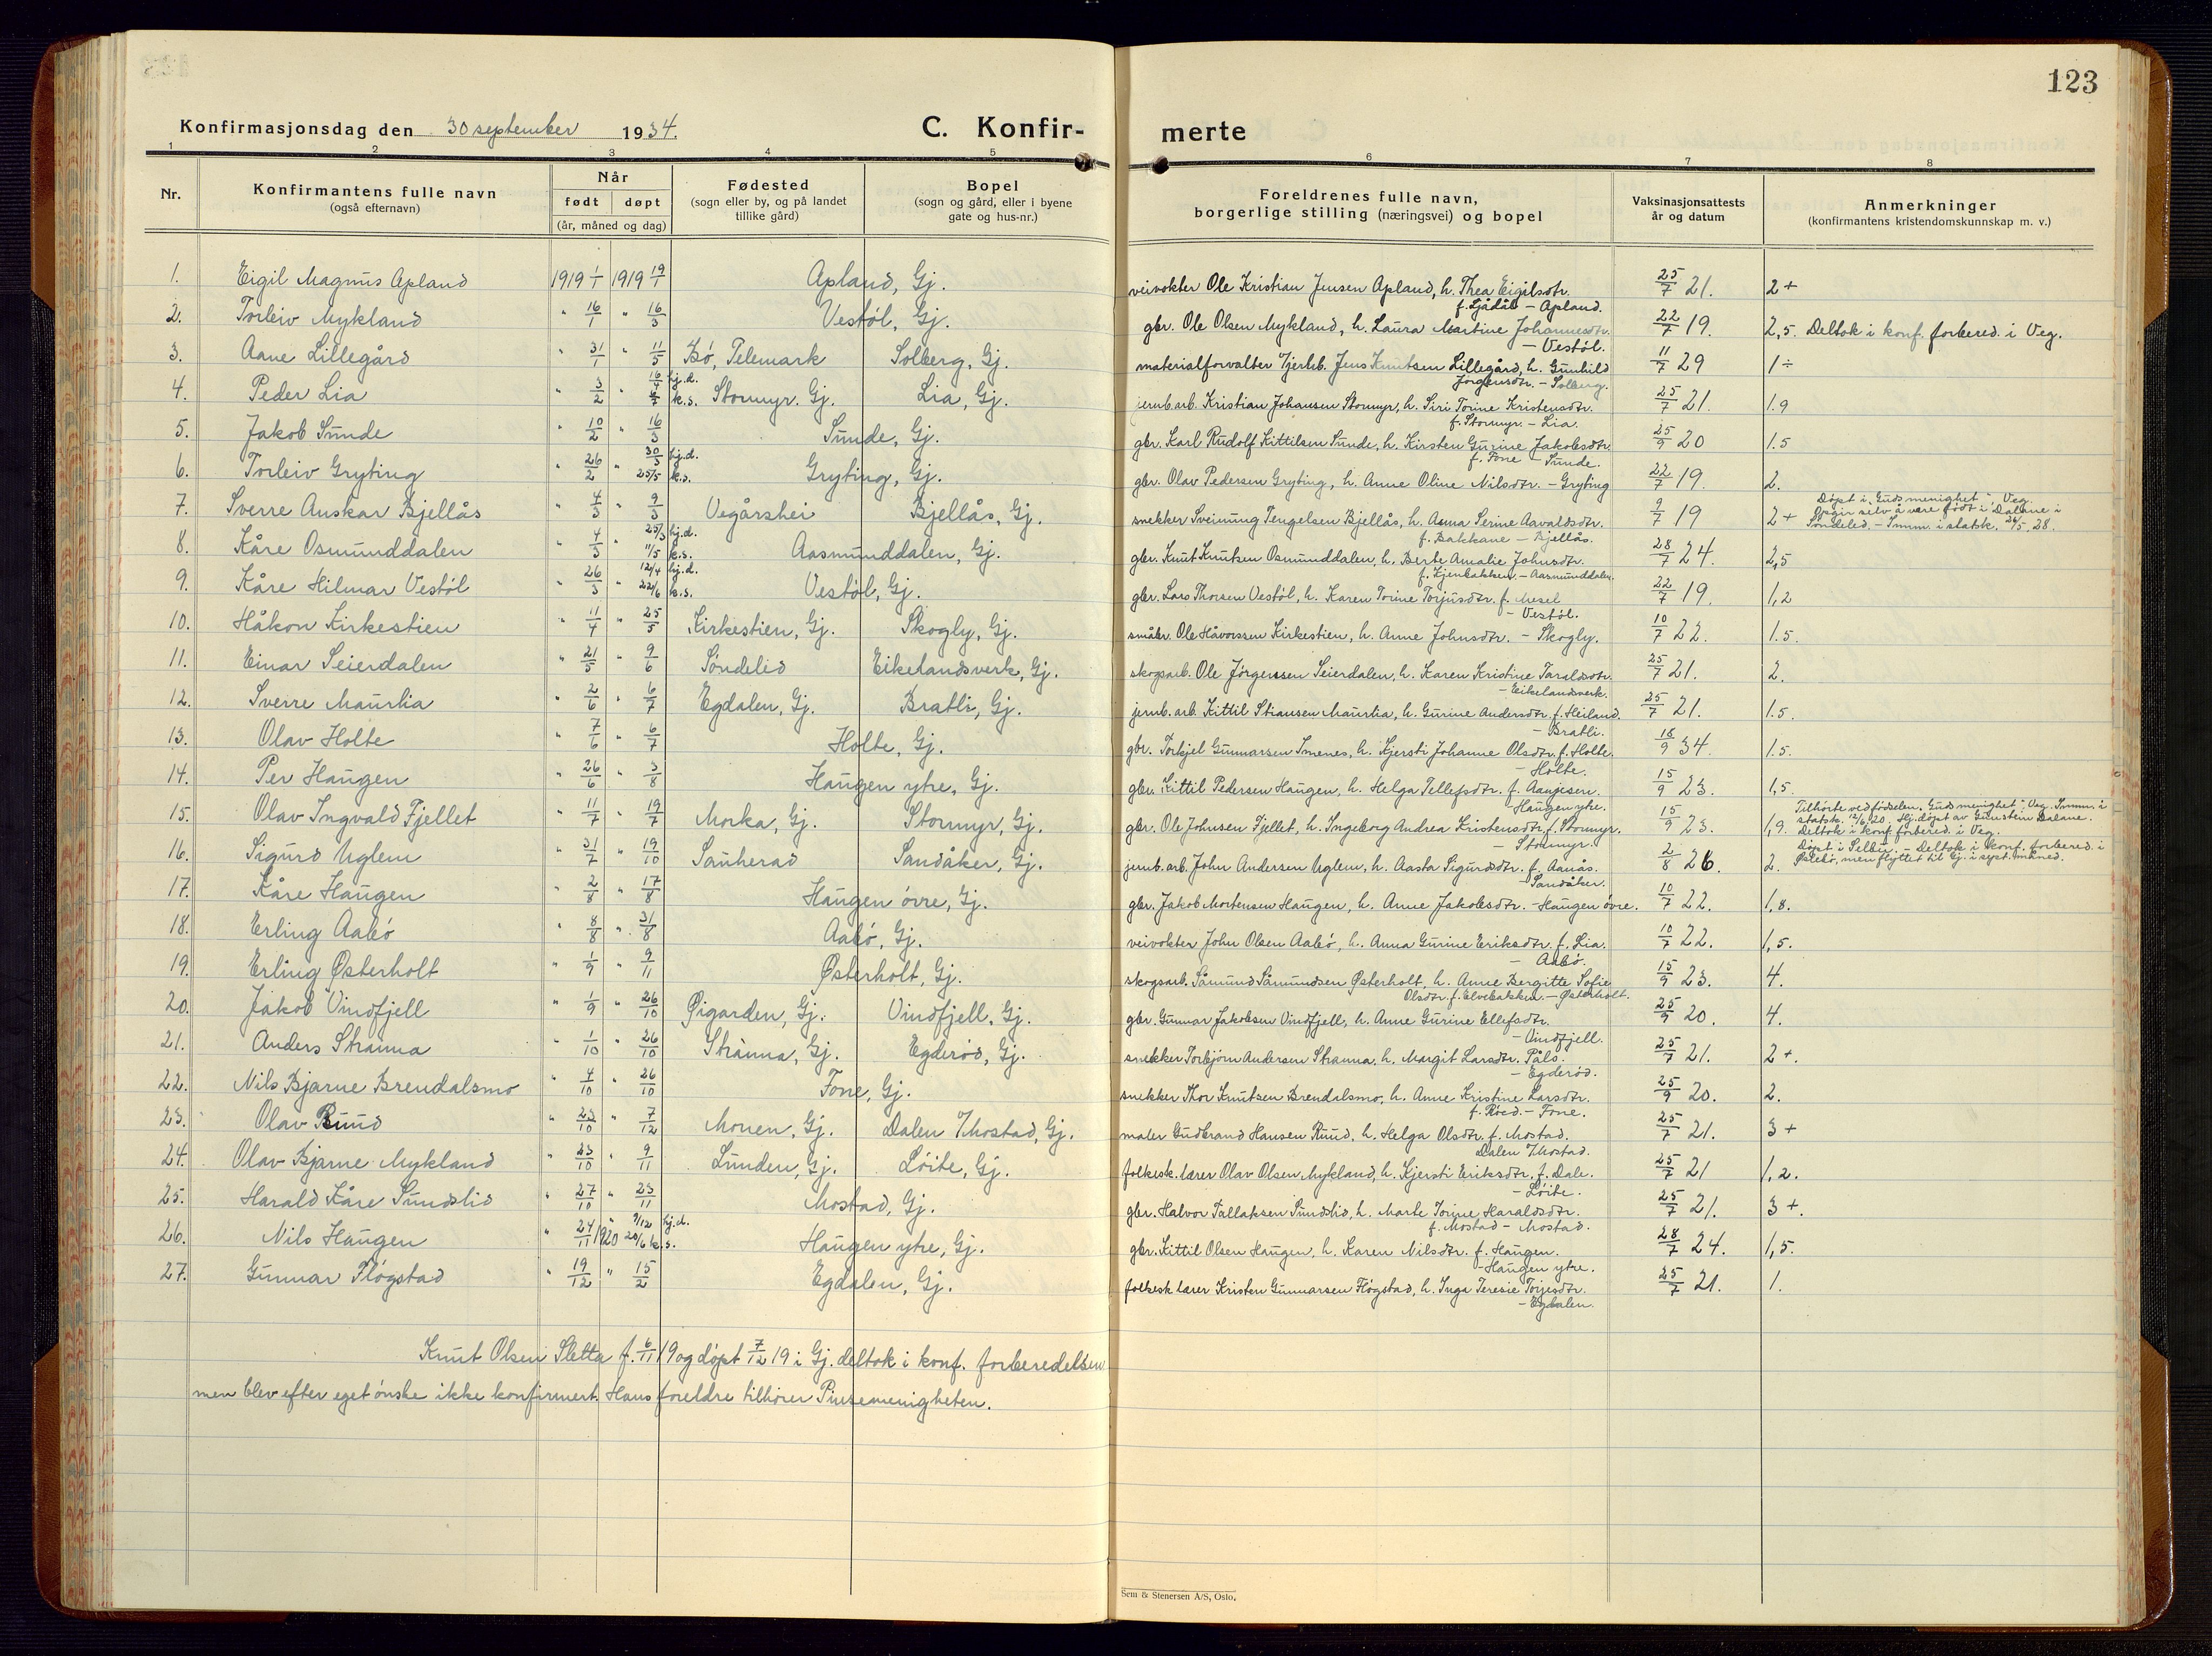 123
Konfirmasjonsdag den 30 september 1934. C. Konfir- merte
1 2 3 4 5 6 7 8
Nr. Konfirmantens fulle navn (også efternavn) Når født døpt (år, måned og dag) Fødested (sogn eller by, og på landet tillike gård) Bopel (sogn og gård, eller i byene gate og hus-nr.) Foreldrenes fulle navn, borgerlige stilling (næringsvei) og bopel Vaksinasjonsattests år og datum Anmerkninger (konfirmantens kristendomskunnskap m. v.)
1. Eigil Magnus Apland 1919 1/1 1919 19/1 Apland, Gj. veivokter Ole Kristian Jensen Apland, h. Thea Eigilsdtr. f. Ljådål - Apland. 25/7 21. 2+
2. Torleiv Mykland " 16/1 " 16/3 Vestöl, Gj. gbr. Ole Olsen Mykland, h. Laura Martine Johannesdtr. - Vestöl. 22/7 19. 2,5. Deltok i konf. forbered. i Veg.
3. Aane Lillegård " 31/1 " 11/5 Bö, Telemark Solberg, Gj. materialforvalter v/jernb. Jens Knutsen Lillegård, h. Gunhild Jörgensdtr. - Solberg. 11/7 29 1÷
4. Peder Lia " 3/2 " hj.d. k.s. Stormyr. Gj. Lia, Gj. jernb.arb. Kristian Johansen Stormyr, h. Siri Torine Kristensdtr. f. Stormyr. - Lia. 25/7 21. 1.9
5. Jakob Sunde " 10/2 " 16/3 Sunde, Gj. gbr. Karl Rudolf Kittilsen Sunde, h. Kirsten Gurine Jakobsdtr. f. Fone - Sunde. 25/9 20 1.5
6. Torleiv Gryting " 26/2 " 30/3 hj.d. 25/5 k.s. Gryting, Gj. gbr. Olav Pedersen Gryting, h. Anne Oline Nilsdtr. - Gryting 22/7 19. 2.
7. Sverre Anskar Bjellås " 4/3 " 9/3 Vegårshei Bjellås, Gj. snekker Sveinung Tengelsen Bjellås, h. Anna Serine Aavaldsdtr. f. Bakkane - Bjellås. 9/7 19 2+ Döpt i "Guds menighet", Veg. Opgir selv å være født i Dalane i Söndeled. - Innm. i statsk. 24/5 28.
8. Kåre Osmunddalen " 4/3 25/3 hj.d. 11/5 k.s. Aasmunddalen, Gj. gbr. Knut Knutsen Osmunddalen, h. Berte Amalie Johnsdtr. f. Kjenbakken - Aasmunddalen. 28/7 24. 2,5
9. Kåre Hilmar Vestöl " 26/3 12/4 hj.d. 22/6 k.s. Vestöl, Gj. gbr. Lars Thorsen Vestöl, h. Karen Torine Torjusdtr. f. Mesel - Vestöl. 22/7 19. 1,2
10. Håkon Kirkestien " 11/4 " 25/5 Kirkestien, Gj. Skogly, Gj. småbr. Ole Håvorssen Kirkestien, h. Anne Johnsdtr. - Skogly. 10/7 22. 1.5.
11. Einar Seierdalen " 21/5 " 9/6 Söndeled Eikelandsverk, Gj. skogsarb. Ole Jörgensen Seierdalen, h. Karen Kristine Taraldsdtr. - Eikelandsverk. 25/7 21. 2.
12. Sverre Maurlia " 2/6 " 6/7 Egdalen, Gj. Bratli, Gj. jernb. arb. Kittil Stiansen Maurlia, h. Gurine Andersdtr. f. Heiland. - Bratli. 25/7 21. 1.5.
13. Olav Holte " 7/6 " 6/7 Holte, Gj. gbr. Torkjel Gunnarsen Smenes, h. Kjersti Johanne Olsdtr. f. Holte. - Holte. 18/9 34. 1.5.
14. Per Haugen " 26/6 " 3/8 Haugen ytre, Gj. gbr. Kittil Pedersen Haugen, h. Helga Tellefsdtr. f. Aanjesen. - Haugen ytre. 15/9 23. 1,5.
15. Olav Ingvald Fjellet " 11/7 " 19/7 Morka, Gj. Stormyr, Gj. gbr. Ole Johnsen Fjellet, h. Ingeborg Andrea Kristensdtr. f. Stormyr. - Stormyr. 15/9 23. 1,9. Tilhörte ved födselen "Guds menighet", Veg. Innm. i statsk. 12/6 20. Hj. döpt av Gunstein Dalane. Deltok i konf. forbered. i Veg.
16. Sigurd Uglem " 31/7 " 19/10 Sauherad Sandåker, Gj. jernb. arb. John Andersen Uglem, h. Aasta Sigurdsdtr. f. Aanås. - Sandåker. 2/8 26. 2. Döpt i Selbu. - Deltok i konf. forbered. i Östebö, men flyttet til Gj. i sept. måned.
17. Kåre Haugen " 2/8 " 17/8 Haugen övre, Gj. gbr. Jakob Mortensen Haugen, h. Anne Jakobsdtr. - Haugen övre. 10/7 22. 1,8.
18. Erling Aabö " 8/8 " 31/8 Aabö, Gj. veivokter John Olsen Aabö, h. Anna Gurine Eriksdtr. f. Lia. - Aabö. 10/7 22. 1,5.
19. Erling Østerholt " 1/9 " 9/11 Østerholt, Gj. skogsarb. Såmund Såmundsen Østerholt, h. Anne Bergitte Sofie Olsdtr. f. Elvebakken. - Østerholt. 15/9 23. 4.
20. Jakob Vindfjell " 1/9 " 26/10 Øigarden, Gj. Vindfjell, Gj. gbr. Gunnar Jakobsen Vindfjell, h. Anne Gurine Ellefsdtr. - Vindfjell. 25/9 20. 4.
21. Anders Stranna " 1/10 " 26/10 Stranna, Gj. Egderöd, Gj. snekker Torbjörn Andersen Stranna, h. Margit Larsdtr. Påls. - Egderöd. 25/7 21. 2+.
22. Nils Bjarne Brendalsmo " 4/10 " 26/10 Fone, Gj. snekker Thor Knutsen Brendalsmo, h. Anne Kristine Larsdtr. f. Röed. - Fone. 25/9 20. 2.
23. Olav Ruud " 23/10 " 7/12 Monen, Gj. Dalen v/Mostad, Gj. maler Gudbrand Hansen Ruud, h. Helga Olsdtr. f. Mostad. Dalen v/Mostad. 25/7 21. 3+
24. Olav Bjarne Mykland " 23/10 " 9/11 Lunden, Gj. Löite, Gj. folkesk. lærer Olav Olsen Mykland, h. Kjersti Eriksdtr. f. Dale. - Löite. 25/7 21 1,2.
25. Harald Kåre Sundslid " 27/10 " 23/11 Mostad, Gj. gbr. Halvor Tallaksen Sundslid, h. Marte Torine Haraldsdtr. f. Mostad - Mostad. 25/7 21. 3+.
26. Nils Haugen " 24/11 " 9/12 hj.d. 1920 20/6 k.s. Haugen ytre, Gj. gbr. Kittil Olsen Haugen, h. Karen Nilsdtr. f. Haugen. - Haugen ytre. 28/7 24. 1,5.
27. Gunnar Flögstad " 19/12 " 15/2 Egdalen, Gj. folkesk. lærer Kristen Gunnarsen Flögstad, h. Inga Teresie Torjesdtr. - Egdalen. 25/7 21. 1.
Knut Olsen Sletta f. 6/11 19 og döpt 7/12 19 i Gj. deltok i konf. forberedelsen
men blev efter eget önske ikke konfirmert. Hans foreldre tilhörer Pinsemenigheten.
Sem & Stenersen A/S, Oslo.